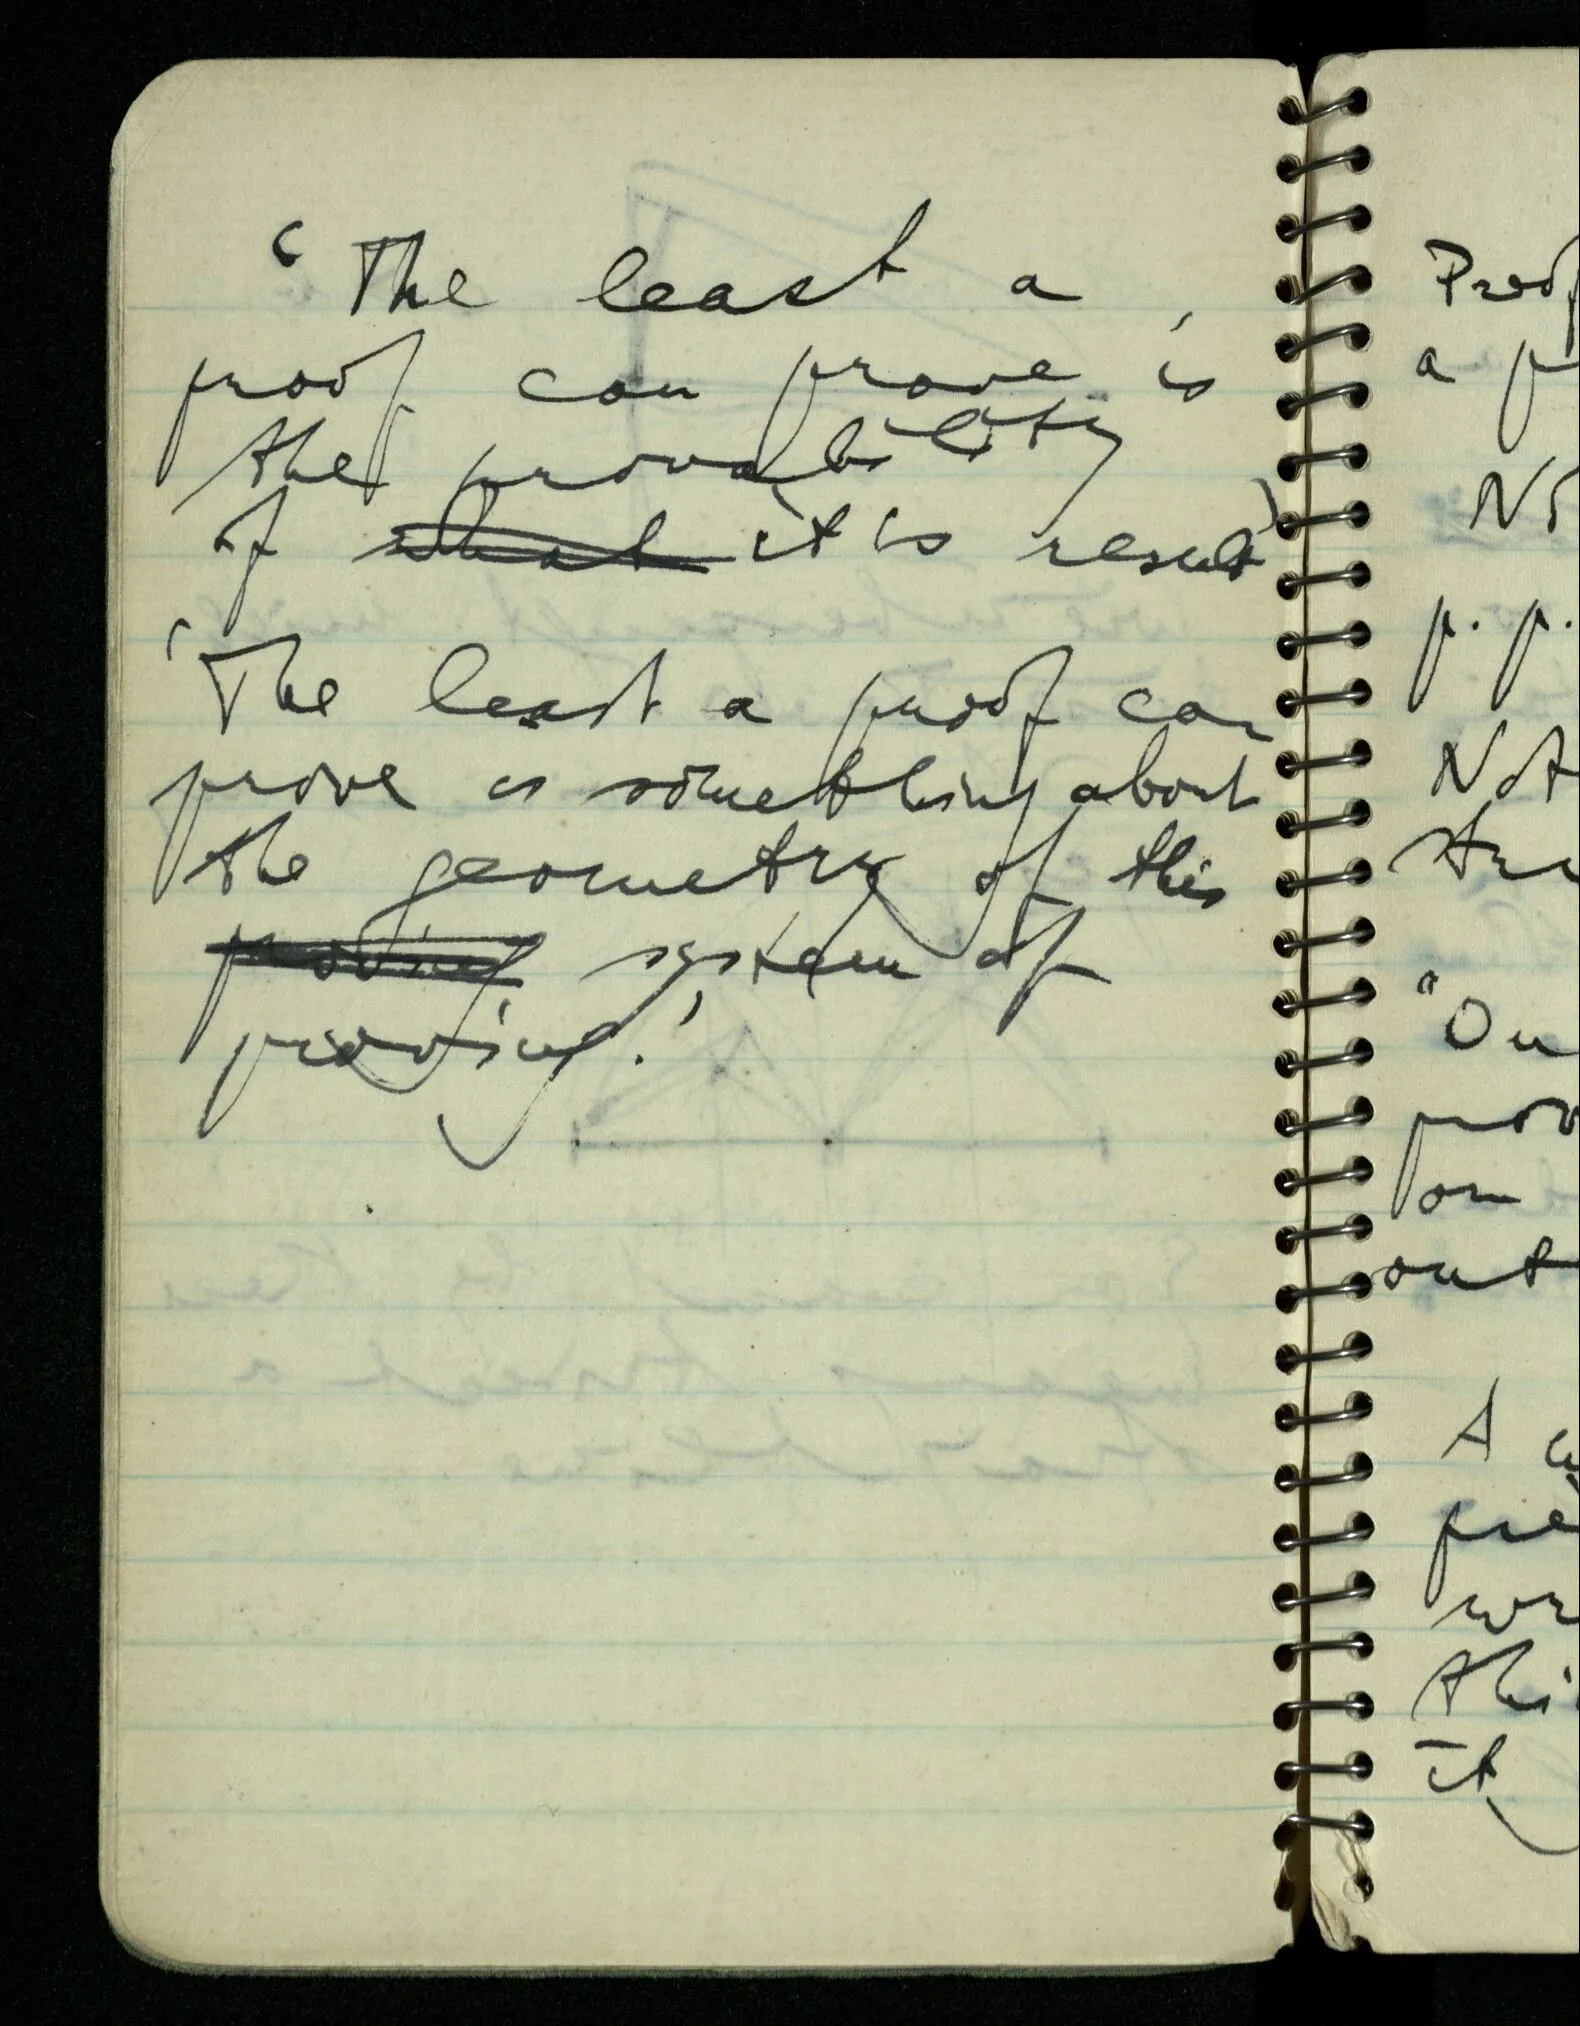 ‘The least a
proof can prove is
the provability
of what it is result’
‘The least a proof can
prove is something about
the geometry of this
proving system of
proving.’
Proof
a p
No
p. p.
Not
"Our
prov
on
out
A
pre
wr
this
it